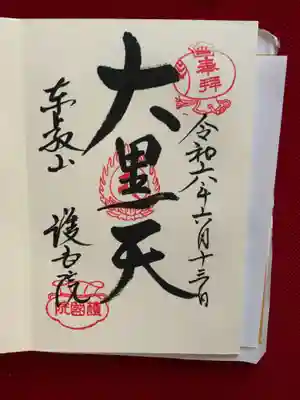 奉拝
令和六年六月十三日
大黒天
东叡山
護国院
護國院